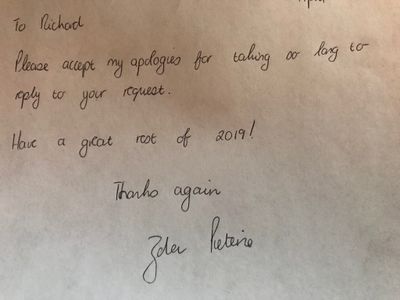 To Richard
Please accept my apologies for taking so long to
reply to your request.
Have a great rest of 2019!
Thanks again